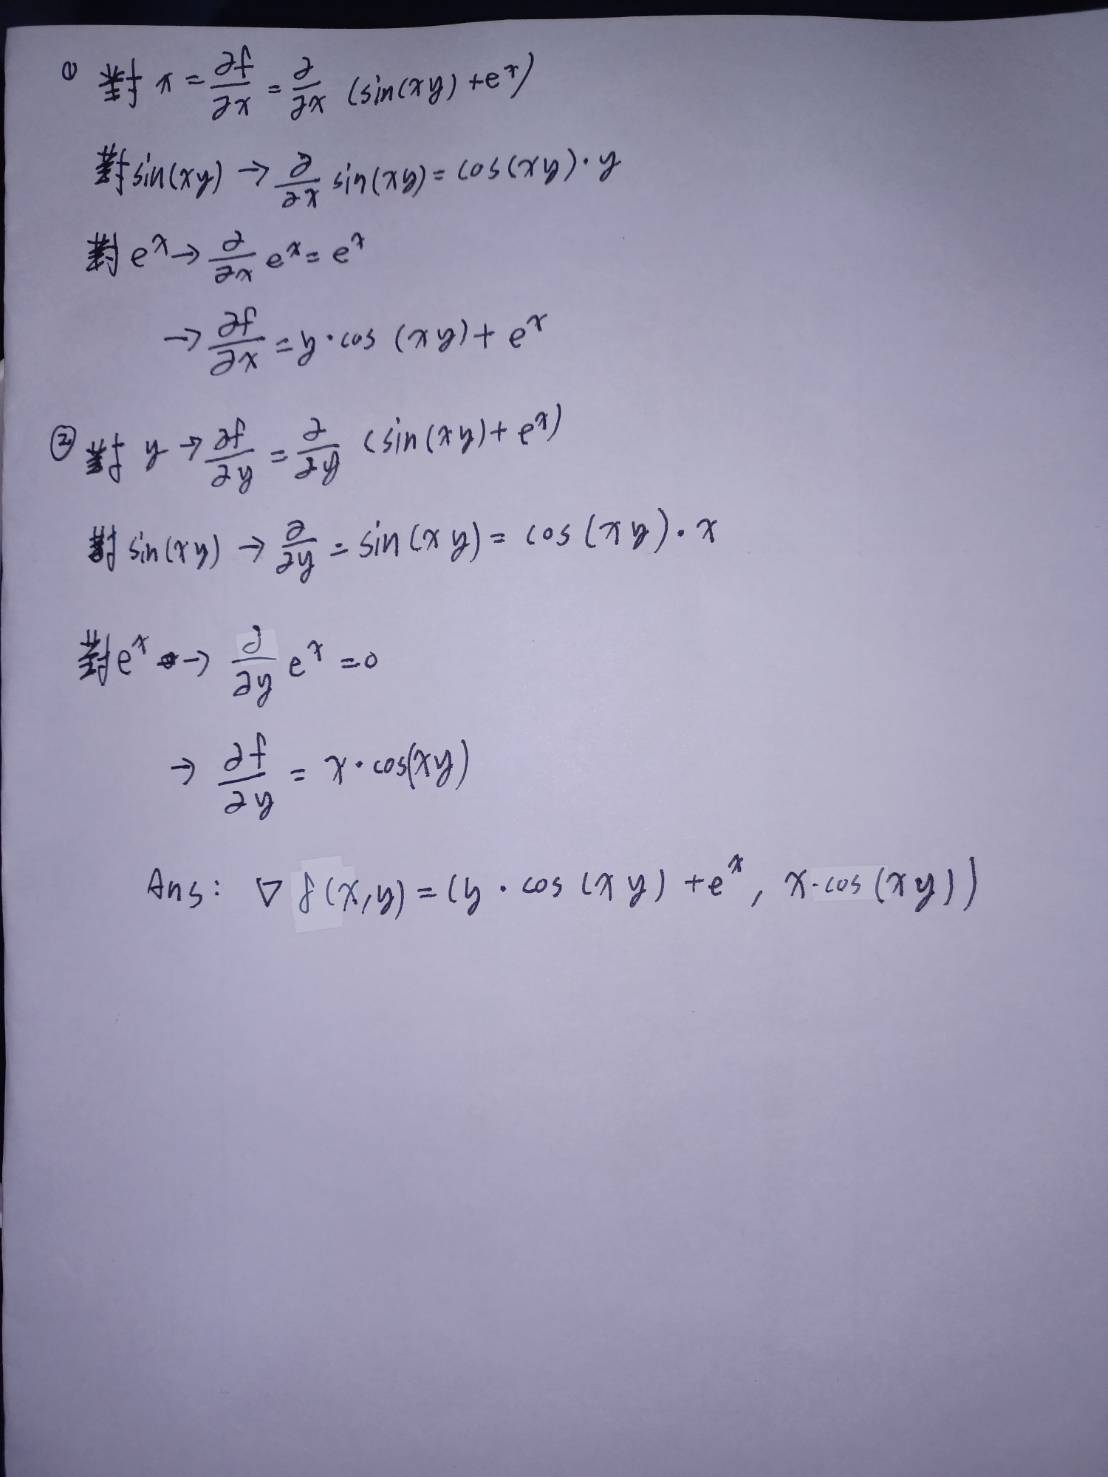 ① 對 x = ∂f/∂x = ∂/∂x (sin(xy) + e^x)
對 sin(xy) → ∂/∂x sin(xy) = cos(xy)·y
對 e^x → ∂/∂x e^x = e^x
→ ∂f/∂x = y·cos(xy) + e^x
② 對 y → ∂f/∂y = ∂/∂y (sin(xy) + e^x)
對 sin(xy) → ∂/∂y = sin(xy) = cos(xy)·x
對 e^x → ∂/∂y e^x = 0
→ ∂f/∂y = x·cos(xy)
Ans: ∇f(x,y) = (y·cos(xy) + e^x, x·cos(xy))